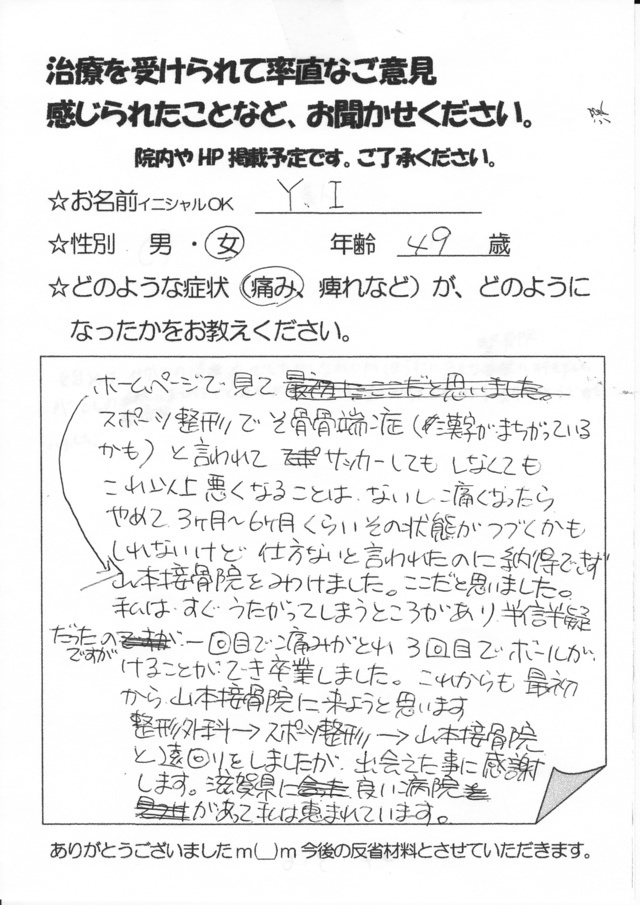 治療を受けられて率直なご意見
感じられたことなど、お聞かせください。
院内やHP掲載予定です。ご了承ください。
☆お名前イニシャルOK Y.I
☆性別 男・女 年齢 49 歳
☆どのような症状(痛み、痺れなど)が、どのように
なったかをお教えください。
ホームページで見て 最初はここだと思いました。
スポーツ整形でそ骨骨端症(漢字がまちがっている
かも)と言われて サッカーしてもしなくても
これ以上悪くなることは、ないし痛くなったら
やめて、3ヶ月〜6ヶ月くらいその状態がつづくかも
しれないけど 仕方ないと言われたのに納得できず
山本接骨院をみつけました。ここだと思いました。
私は、すぐうたがってしまうところがあり半信半疑
だったのですが、一回目で痛みがとれ 3回目でボールが
けることができ卒業しました。これからも最初
から山本接骨院に来ようと思います
整形外科→スポーツ整形→山本接骨院
と遠回りをしましたが、出会えた事に感謝
します。滋賀県に良い病院
があって私は恵まれています。
ありがとうございましたm(__)m今後の反省材料とさせていただきます。